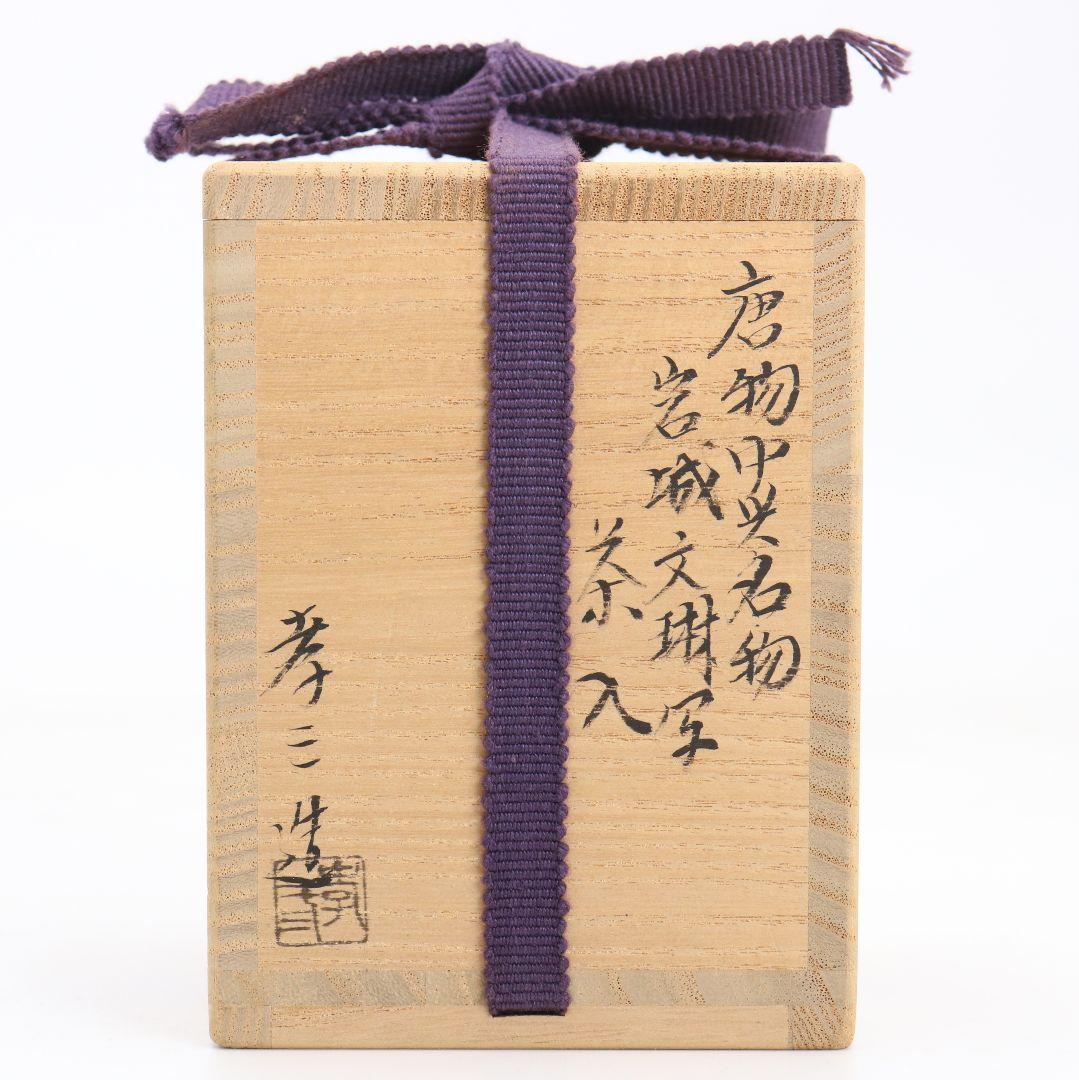 唐物中興名物
岩城文琳写
茶入
孝三造
孝三